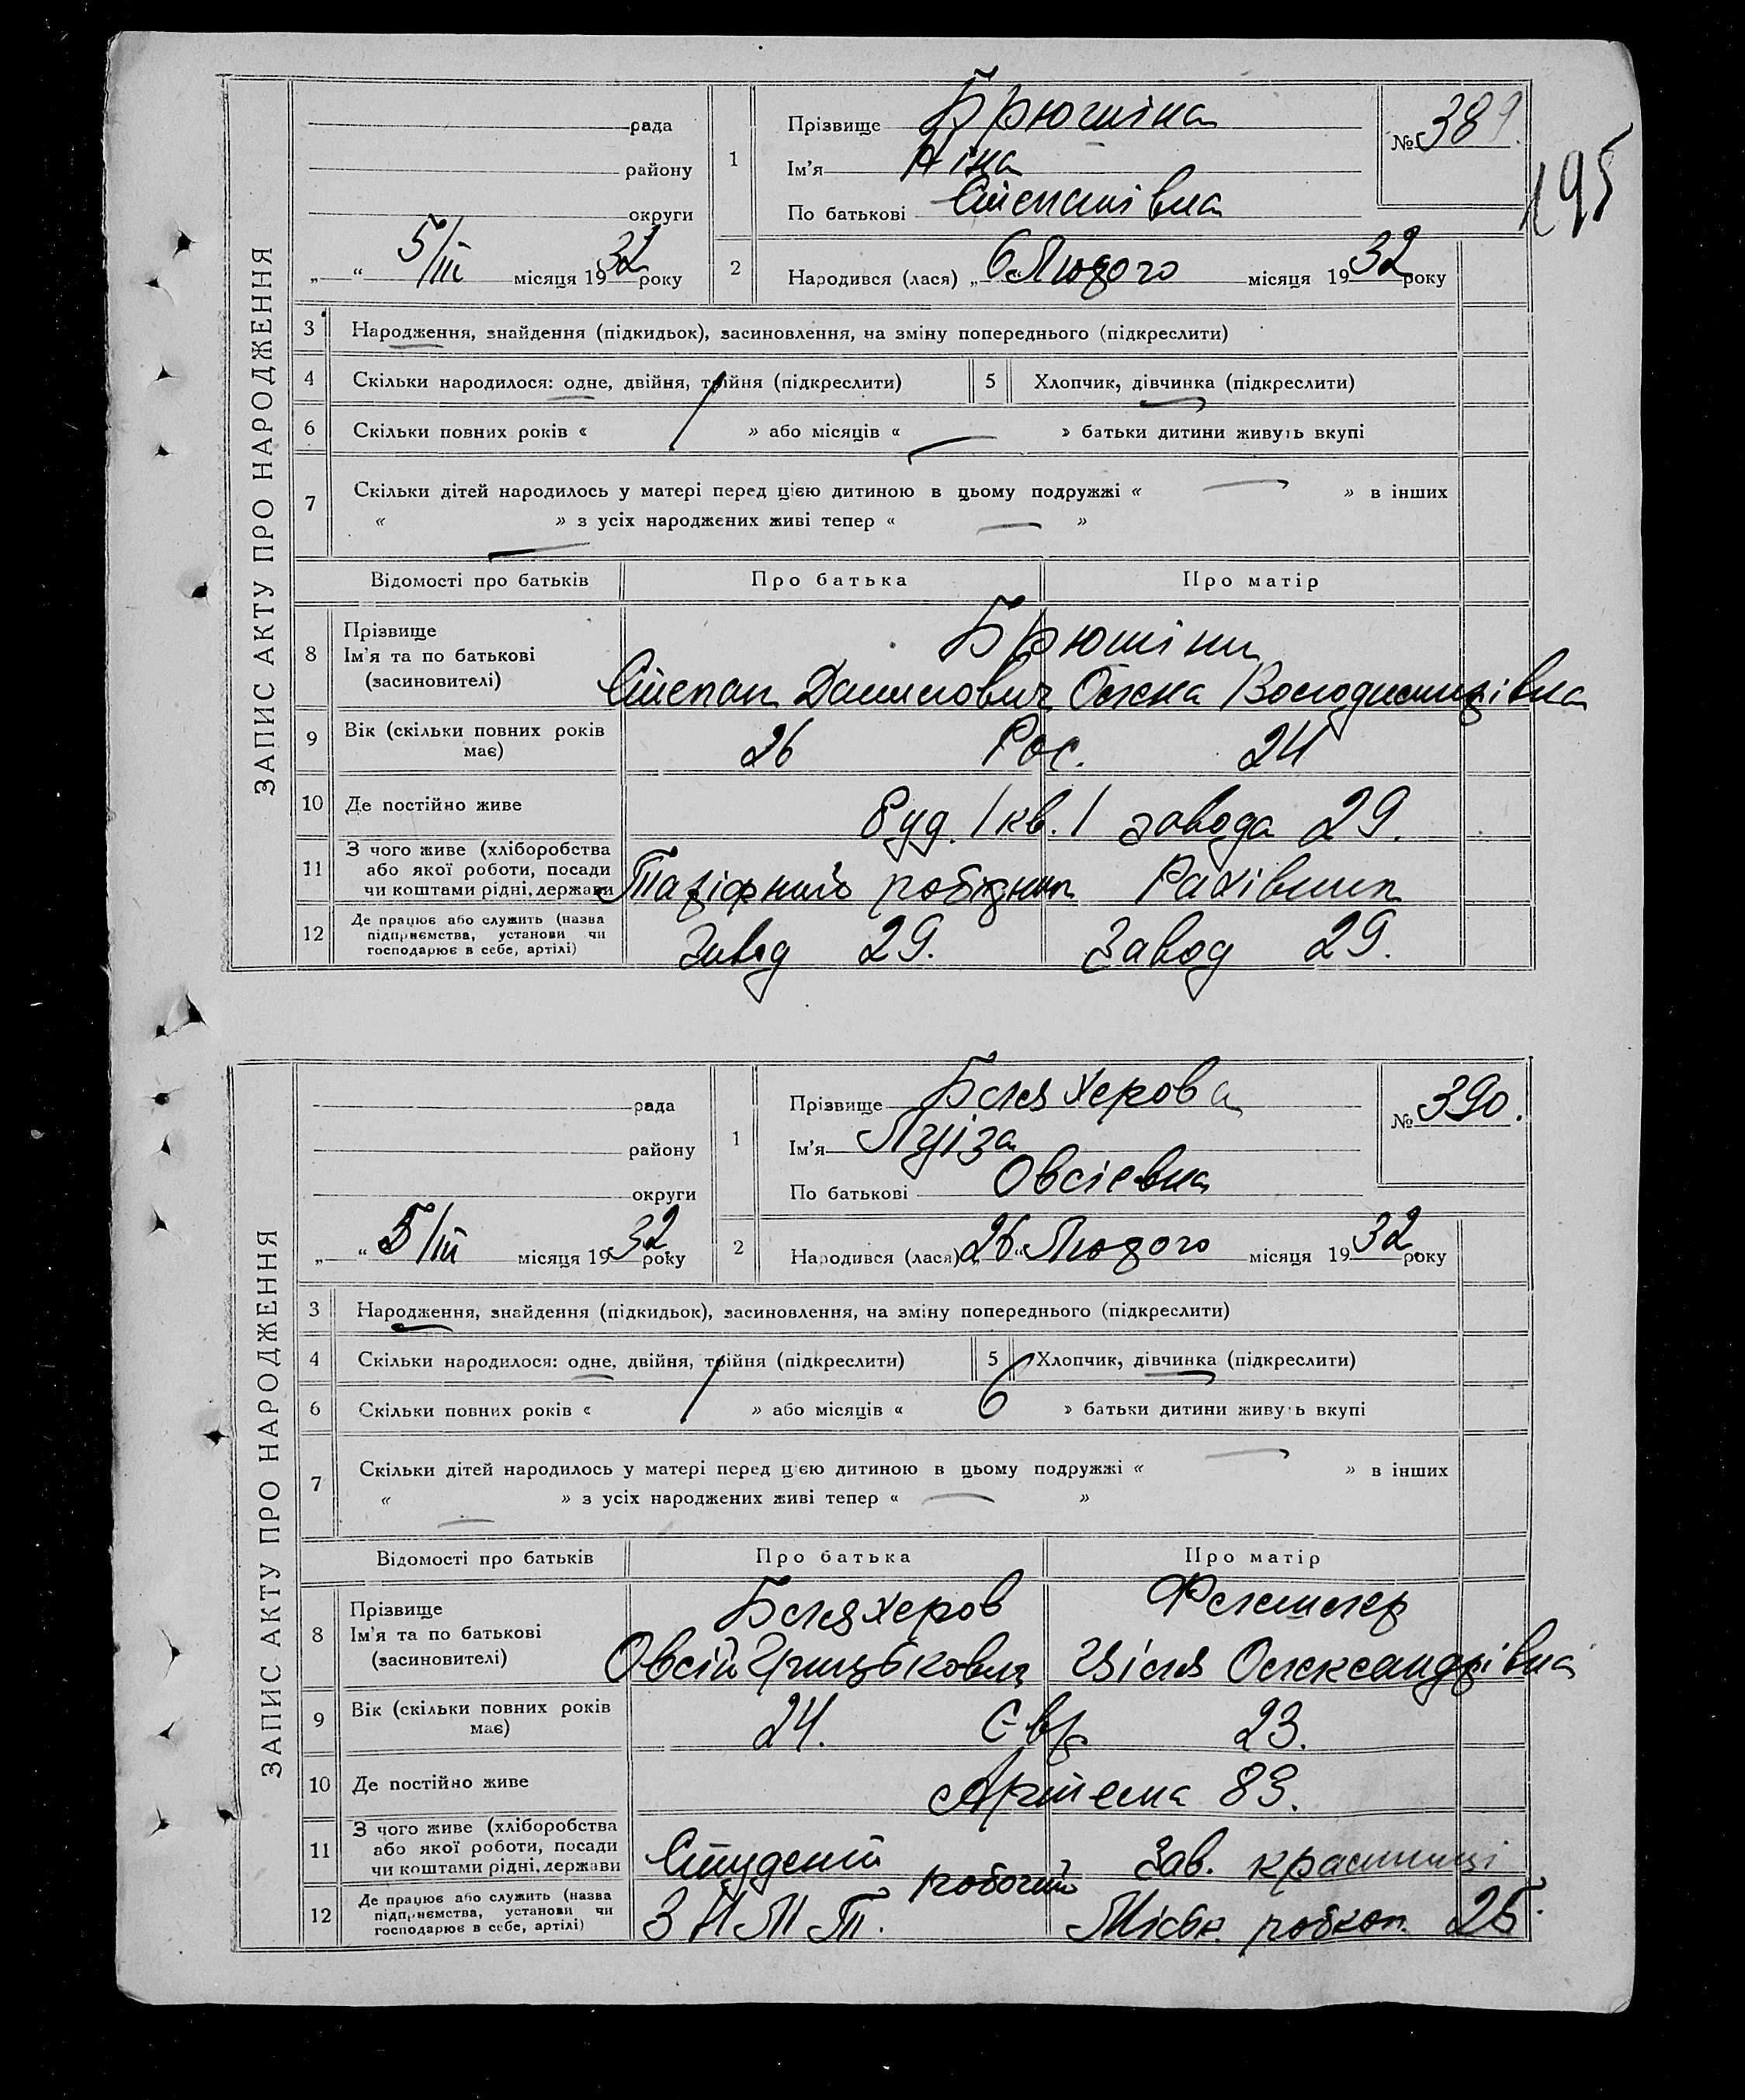 195
ЗАПИС АКТУ ПРО НАРОДЖЕННЯ
рада
району
округи
5/III місяця 1932 року
1
Прізвище Брюшіна
Ім'я Ніна
По батькові Степанівна
№ 389.
2 Народився (лася) „6“ Лютого місяця 1932 року
3 Народження, знайдення (підкидьок), засиновлення, на зміну попереднього (підкреслити)
4 Скільки народилося: одне, двійня, трійня (підкреслити) 5 Хлопчик, дівчинка (підкреслити)
6 Скільки повних років « » або місяців « » батьки дитини живуть вкупі
7 Скільки дітей народилось у матері перед цією дитиною в цьому подружжі « » в інших
« » з усіх народжених живі тепер « »
Відомості про батьків Про батька Про матір
8 Прізвище
Ім'я та по батькові
(засиновителі)
Брюшіни
Степан Данилович Олена Володимирівна
9 Вік (скільки повних років має) 26 Рос. 24
10 Де постійно живе Буд. 1 кв. 1 завода 29.
11 З чого живе (хліборобства
або якої роботи, посади
чи коштами рідні, держави
Тарифний робітник Рахівник
12 Де працює або служить (назва
підприємства, установи чи
господарює в себе, артілі)
Завод 29. Завод 29.
ЗАПИС АКТУ ПРО НАРОДЖЕННЯ
рада
району
округи
„ “ 5/III місяця 1932 року
1
Прізвище Беляхерова
Ім'я Луіза
По батькові Овсіевна
№ 390.
2 Народився (лася) „26“ Лютого місяця 1932 року
3 Народження, знайдення (підкидьок), засиновлення, на зміну попереднього (підкреслити)
4 Скільки народилося: одне, двійня, трійня (підкреслити) 5 Хлопчик, дівчинка (підкреслити)
6 Скільки повних років « » або місяців « 6 » батьки дитини живуть вкупі
7 Скільки дітей народилось у матері перед цією дитиною в цьому подружжі « » в інших
« » з усіх народжених живі тепер « »
Відомості про батьків Про батька Про матір
8 Прізвище
Ім'я та по батькові
(засиновителі)
Беляхеров
Овсій Грицькович Ціля Олександрівна
9 Вік (скільки повних років має) 24. Євр. 23.
10 Де постійно живе Артема 83.
11 З чого живе (хліборобства
або якої роботи, посади
чи коштами рідні, держави
Студент робочий Зав. крамниці
12 Де працює або служить (назва
підприємства, установи чи
господарює в себе, артілі)
Міськ. робкоп. 25.